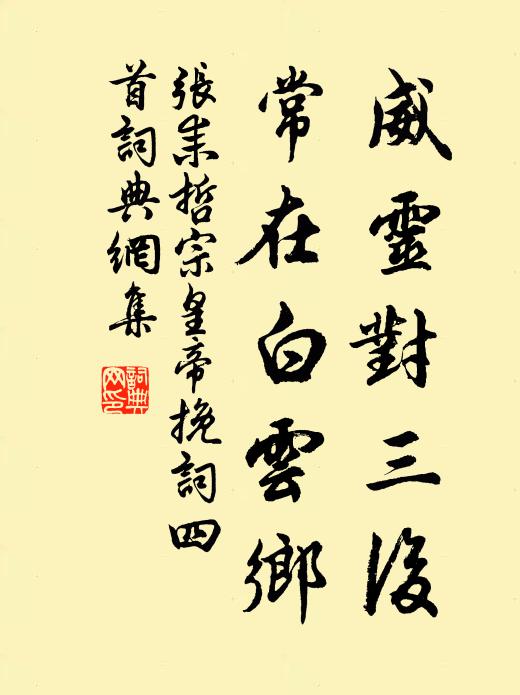 威靈對三後
常在白雲鄉
張耒哲宗皇帝挽詞四
首詞典網集
詞典网印